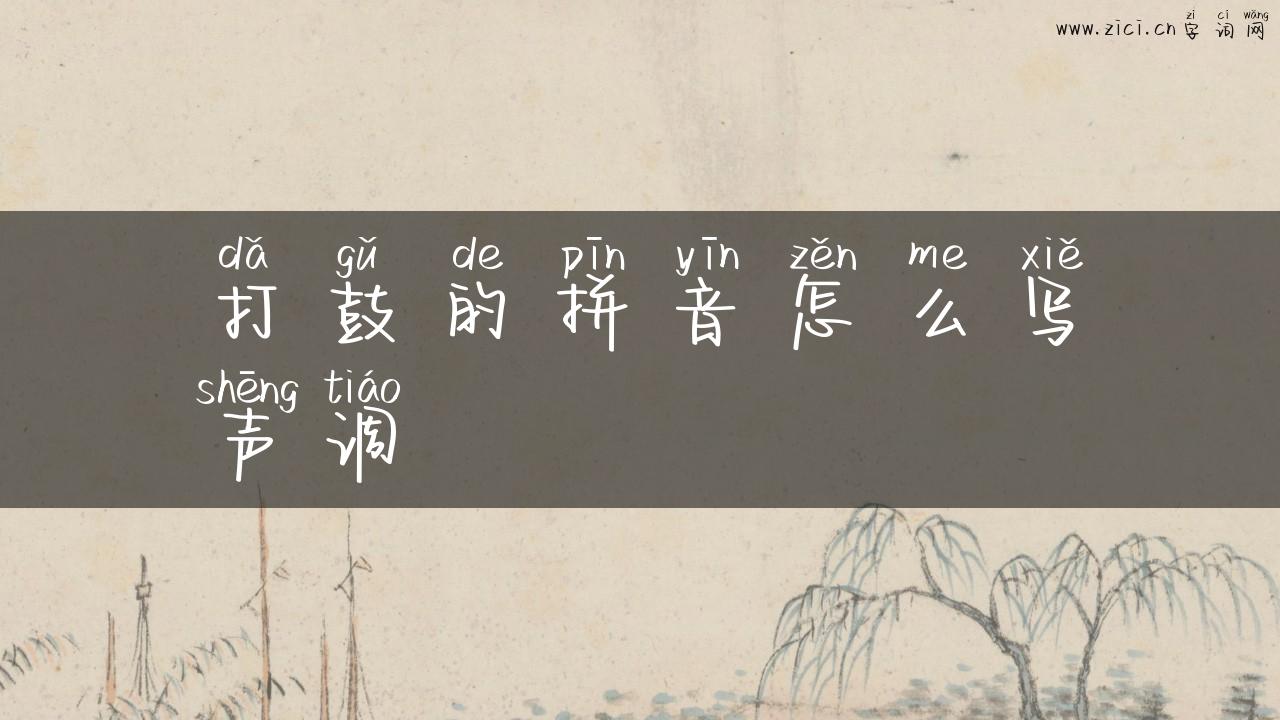 zì cí wǎng
www.zici.cn 字 词 网
dǎ gǔ de pīn yīn zěn me xiě
打 鼓 的 拼 音 怎 么 写
shēng tiáo
声 调